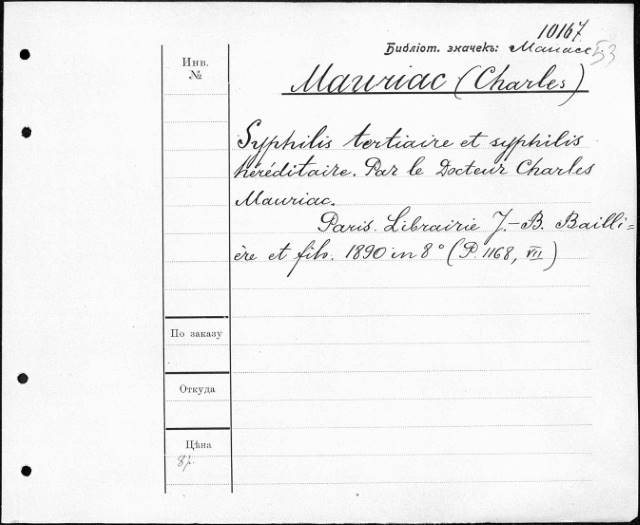 10167
Библіот. значекъ:
Инв.
№
Mauriac (Charles)
Syphilis tertiaire et syphilis
héréditaire. Par le Docteur Charles
Mauriac.
Paris. Librairie J.-B. Bailli=
ère et fils. 1890 in 8° (P. 1168, VII)
По заказу
Откуда
Цѣна
8р.